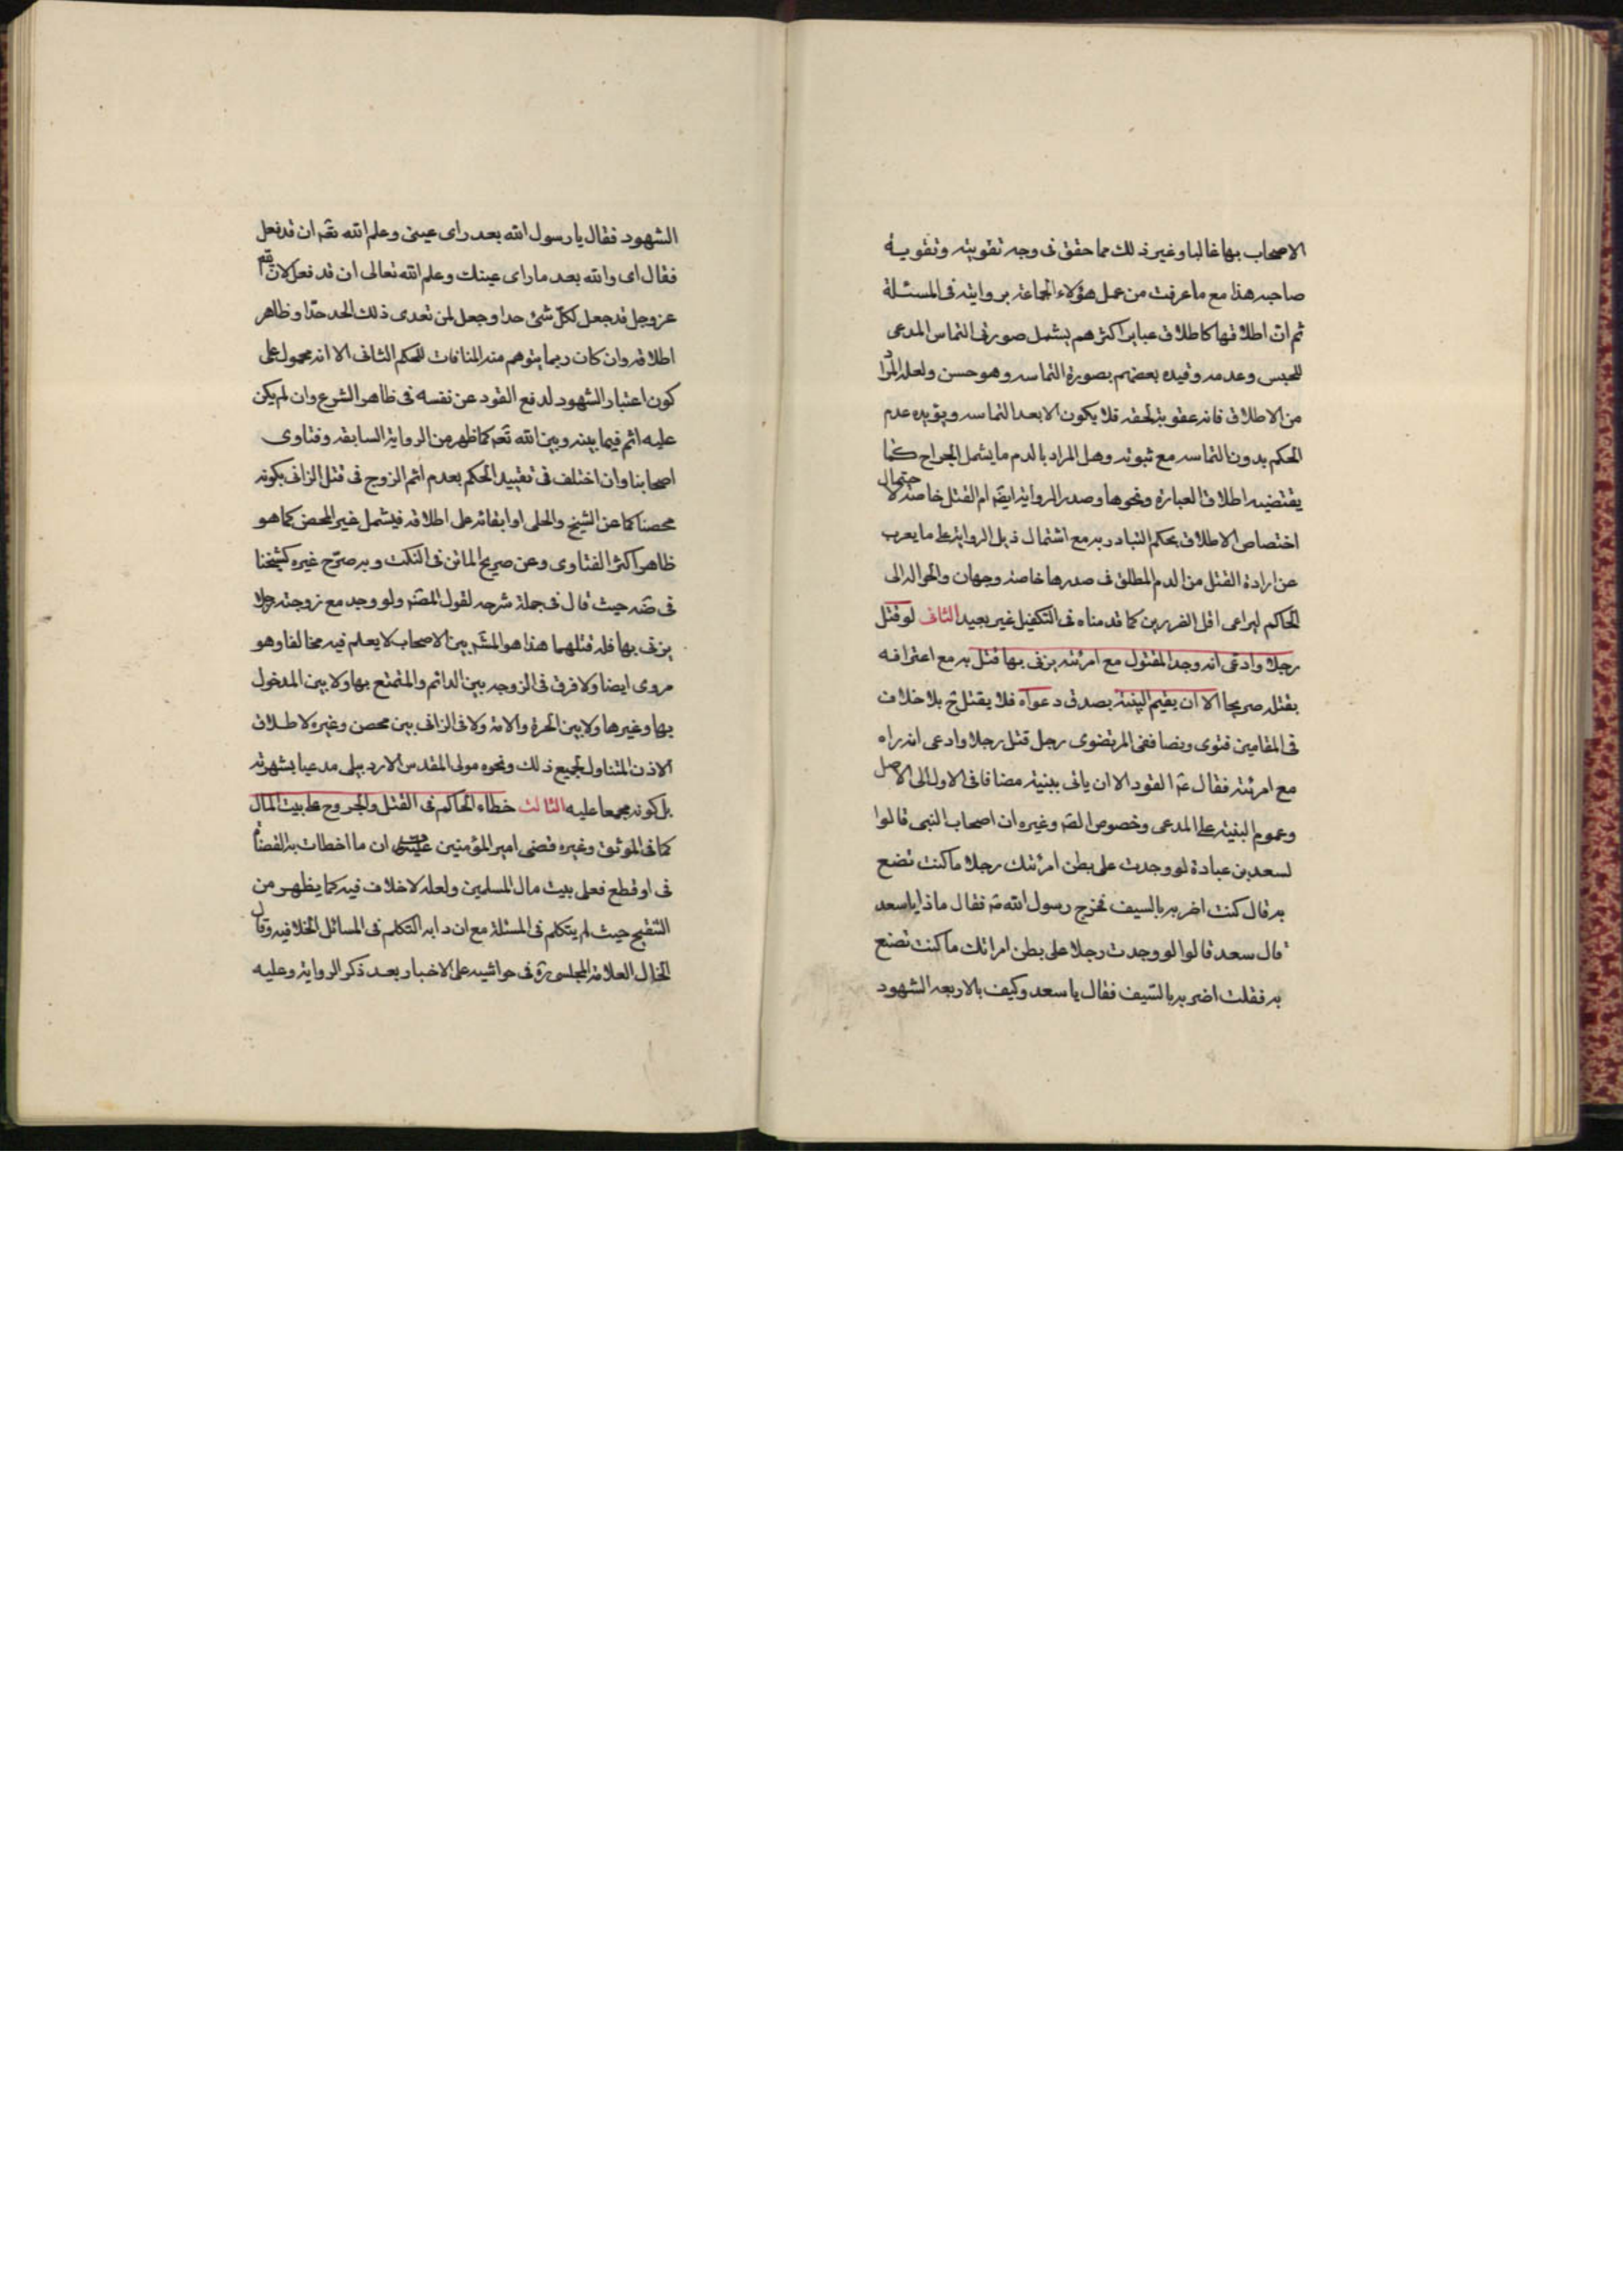 الاصحاب بها غالبا وغير ذلك مما حقق فى وجه تقويته وتقوية
صاحبه هذا مع ما عرفت من عمل هؤلاء الجماعة بروايته فى المسئلة
ثم ان اطلاقها كاطلاق عباير اكثرهم يشمل صورتى التماس المدعى
للحبس وعدمه وقيده بعضهم بصورة التماسه وهو حسن ولعله المراد
من الاطلاق فانه عقوبة لحقه فلا يكون الا بعد التماسه ويؤيده عدم
الحكم بدون التماسه مع ثبوته وهل المراد بالدم ما يشمل الجراح كما
يقتضيه اطلاق العبارة ونحوها وصدر الرواية ايضا ام القتل خاصة لاحتمال
اختصاص الاطلاق بحكم التبادر به مع اشتمال ذيل الرواية على ما يعرب
عن ارادة القتل من الدم المطلق فى صدرها خاصة وجهان والحواله الى
الحاكم ليراعى اقل الضررين كما قدمناه فى التكفيل غير بعيد الثانى لو قتل
رجلا وادعى انه وجد المقتول مع امرئته يزنى بها قتل به مع اعترافه
بقتله صريحا الا ان يقيم البينة بصدق دعواه فلا يقتل ح بلا خلاف
فى المقامين فتوى ونصا ففى المرتضوى رجل قتل رجلا وادعى انه راه
مع امرئته فقال ع القود الا ان ياتى ببينة مضافا فى الاول الى الاصل
وعموم البينة على المدعى وخصوص الصه وغيره ان اصحاب النبى قالوا
لسعد بن عبادة لو وجدت على بطن امرئتك رجلا ما كنت تضع
به قال كنت اضربه بالسيف فخرج رسول الله ص فقال ماذا يا سعد
قال سعد قالوا لو وجدت رجلا على بطن امراتك ما كنت تضع
به فقلت اضربه بالسيف فقال يا سعد وكيف بالاربعه الشهود
الشهود فقال يا رسول الله بعد راى عينى وعلم الله تعه ان قد فعل
فقال اى والله بعد ما راى عينك وعلم الله تعالى ان قد فعل لان الله
عز وجل قد جعل لكل شئ حدا وجعل لمن تعدى ذلك الحد حدا وظاهر
اطلاقه وان كان ربما يتوهم منه المنافات للحكم الثانى الا انه محمول على
كون اعتبار الشهود لدفع القود عن نفسه فى ظاهر الشرع وان لم يكن
عليه اثم فيما بينه وبين الله تعه كما ظهر من الرواية السابقه وفتاوى
اصحابنا وان اختلف فى تقييد الحكم بعدم اثم الزوج فى قتل الزانى بكونه
محصنا كما عن الشيخ والحلى او ابقائه على اطلاقه فيشمل غير المحصن كما هو
ظاهر اكثر الفتاوى وعن صريح الماتن فى النكت وبه صرح غيره كشيخنا
فى ضه حيث قال فى جملة شرحه لقول المصه ولو وجد مع زوجته رجلا
يزنى بها فله قتلهما هذا هو المشه بين الاصحاب لا يعلم فيه مخالفا وهو
مروى ايضا ولا فرق فى الزوجه بين الدائم والمتمتع بها ولا بين المدخول
بها وغيرها ولا بين الحرة والامة ولا فى الزانى بين محصن وغيره لاطلاق
الاذن المتناول لجميع ذلك ونحوه مولى المقدس الاردبيلى مدعيا بشهرته
بل كونه مجمعا عليه الثالث خطاء الحاكم فى القتل والجروح على بيت المال
كما فى الموثق وغيره قضى امير المؤمنين ان ما اخطات به القضاة
فى او قطع فعلى بيت مال المسلمين ولعله لا خلاف فيه كما يظهر من
التنقيح حيث لم يتكلم فى المسئلة مع ان دابه التكلم فى المسائل الخلافيه وقال
الخال العلامة المجلسى ره فى حواشيه على الاخبار بعد ذكر الرواية وعليه